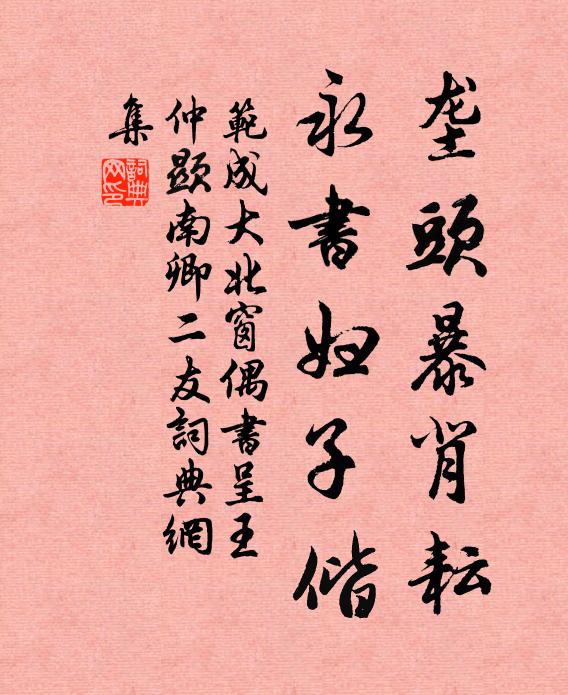 垄頭暴背耘
永書妇子偕
範成大北窗偶書呈王
仲顕南卿二友詞典網
集
詞典
网印